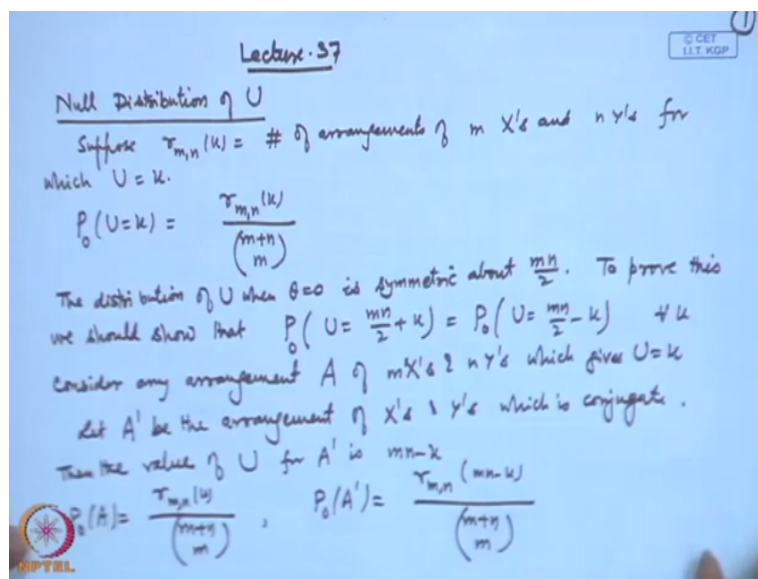 1
Lecture-37
© CET
I.I.T. KGP
Null Distribution of U
Suppose r_{m,n}(k) = # of arrangements of m X's and n Y's for
which U = k.
P_0(U=k) = r_{m,n}(k) / \binom{m+n}{m}
The distribution of U when θ=0 is symmetric about mn/2. To prove this
we should show that P_0(U = mn/2 + k) = P_0(U = mn/2 - k) ∀ k
Consider any arrangement A of m X's & n Y's which gives U=k
Let A' be the arrangement of X's & Y's which is conjugate.
Then the value of U for A' is mn-k
P_0(A) = r_{m,n}(k) / \binom{m+n}{m} , P_0(A') = r_{m,n}(mn-k) / \binom{m+n}{m}
NPTEL